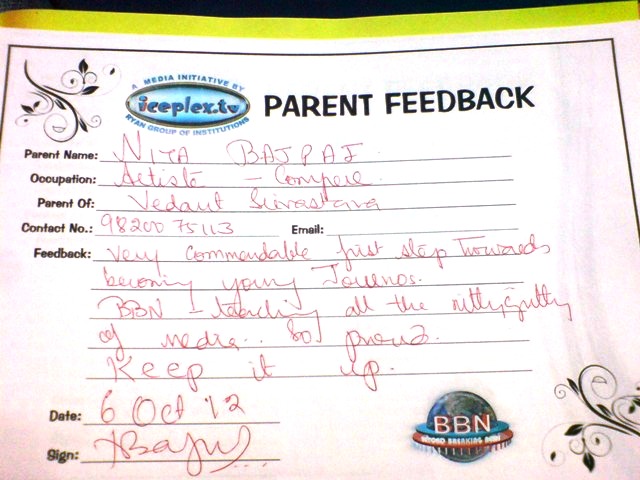 A MEDIA INITIATIVE BY
iceplex.tv
RYAN GROUP OF INSTITUTIONS
PARENT FEEDBACK
Parent Name: NITA BAJPAI
Occupation: Artiste - Compere
Parent Of: Vedant Srivastava
Contact No.: 98200 75113 Email:
Feedback: Very Commendable first step Towards
becoming young Journos.
BBN - teaching all the nitty, gritty
of media.. So proud.
Keep it up.
Date: 6 Oct '12
Sign:
BBN